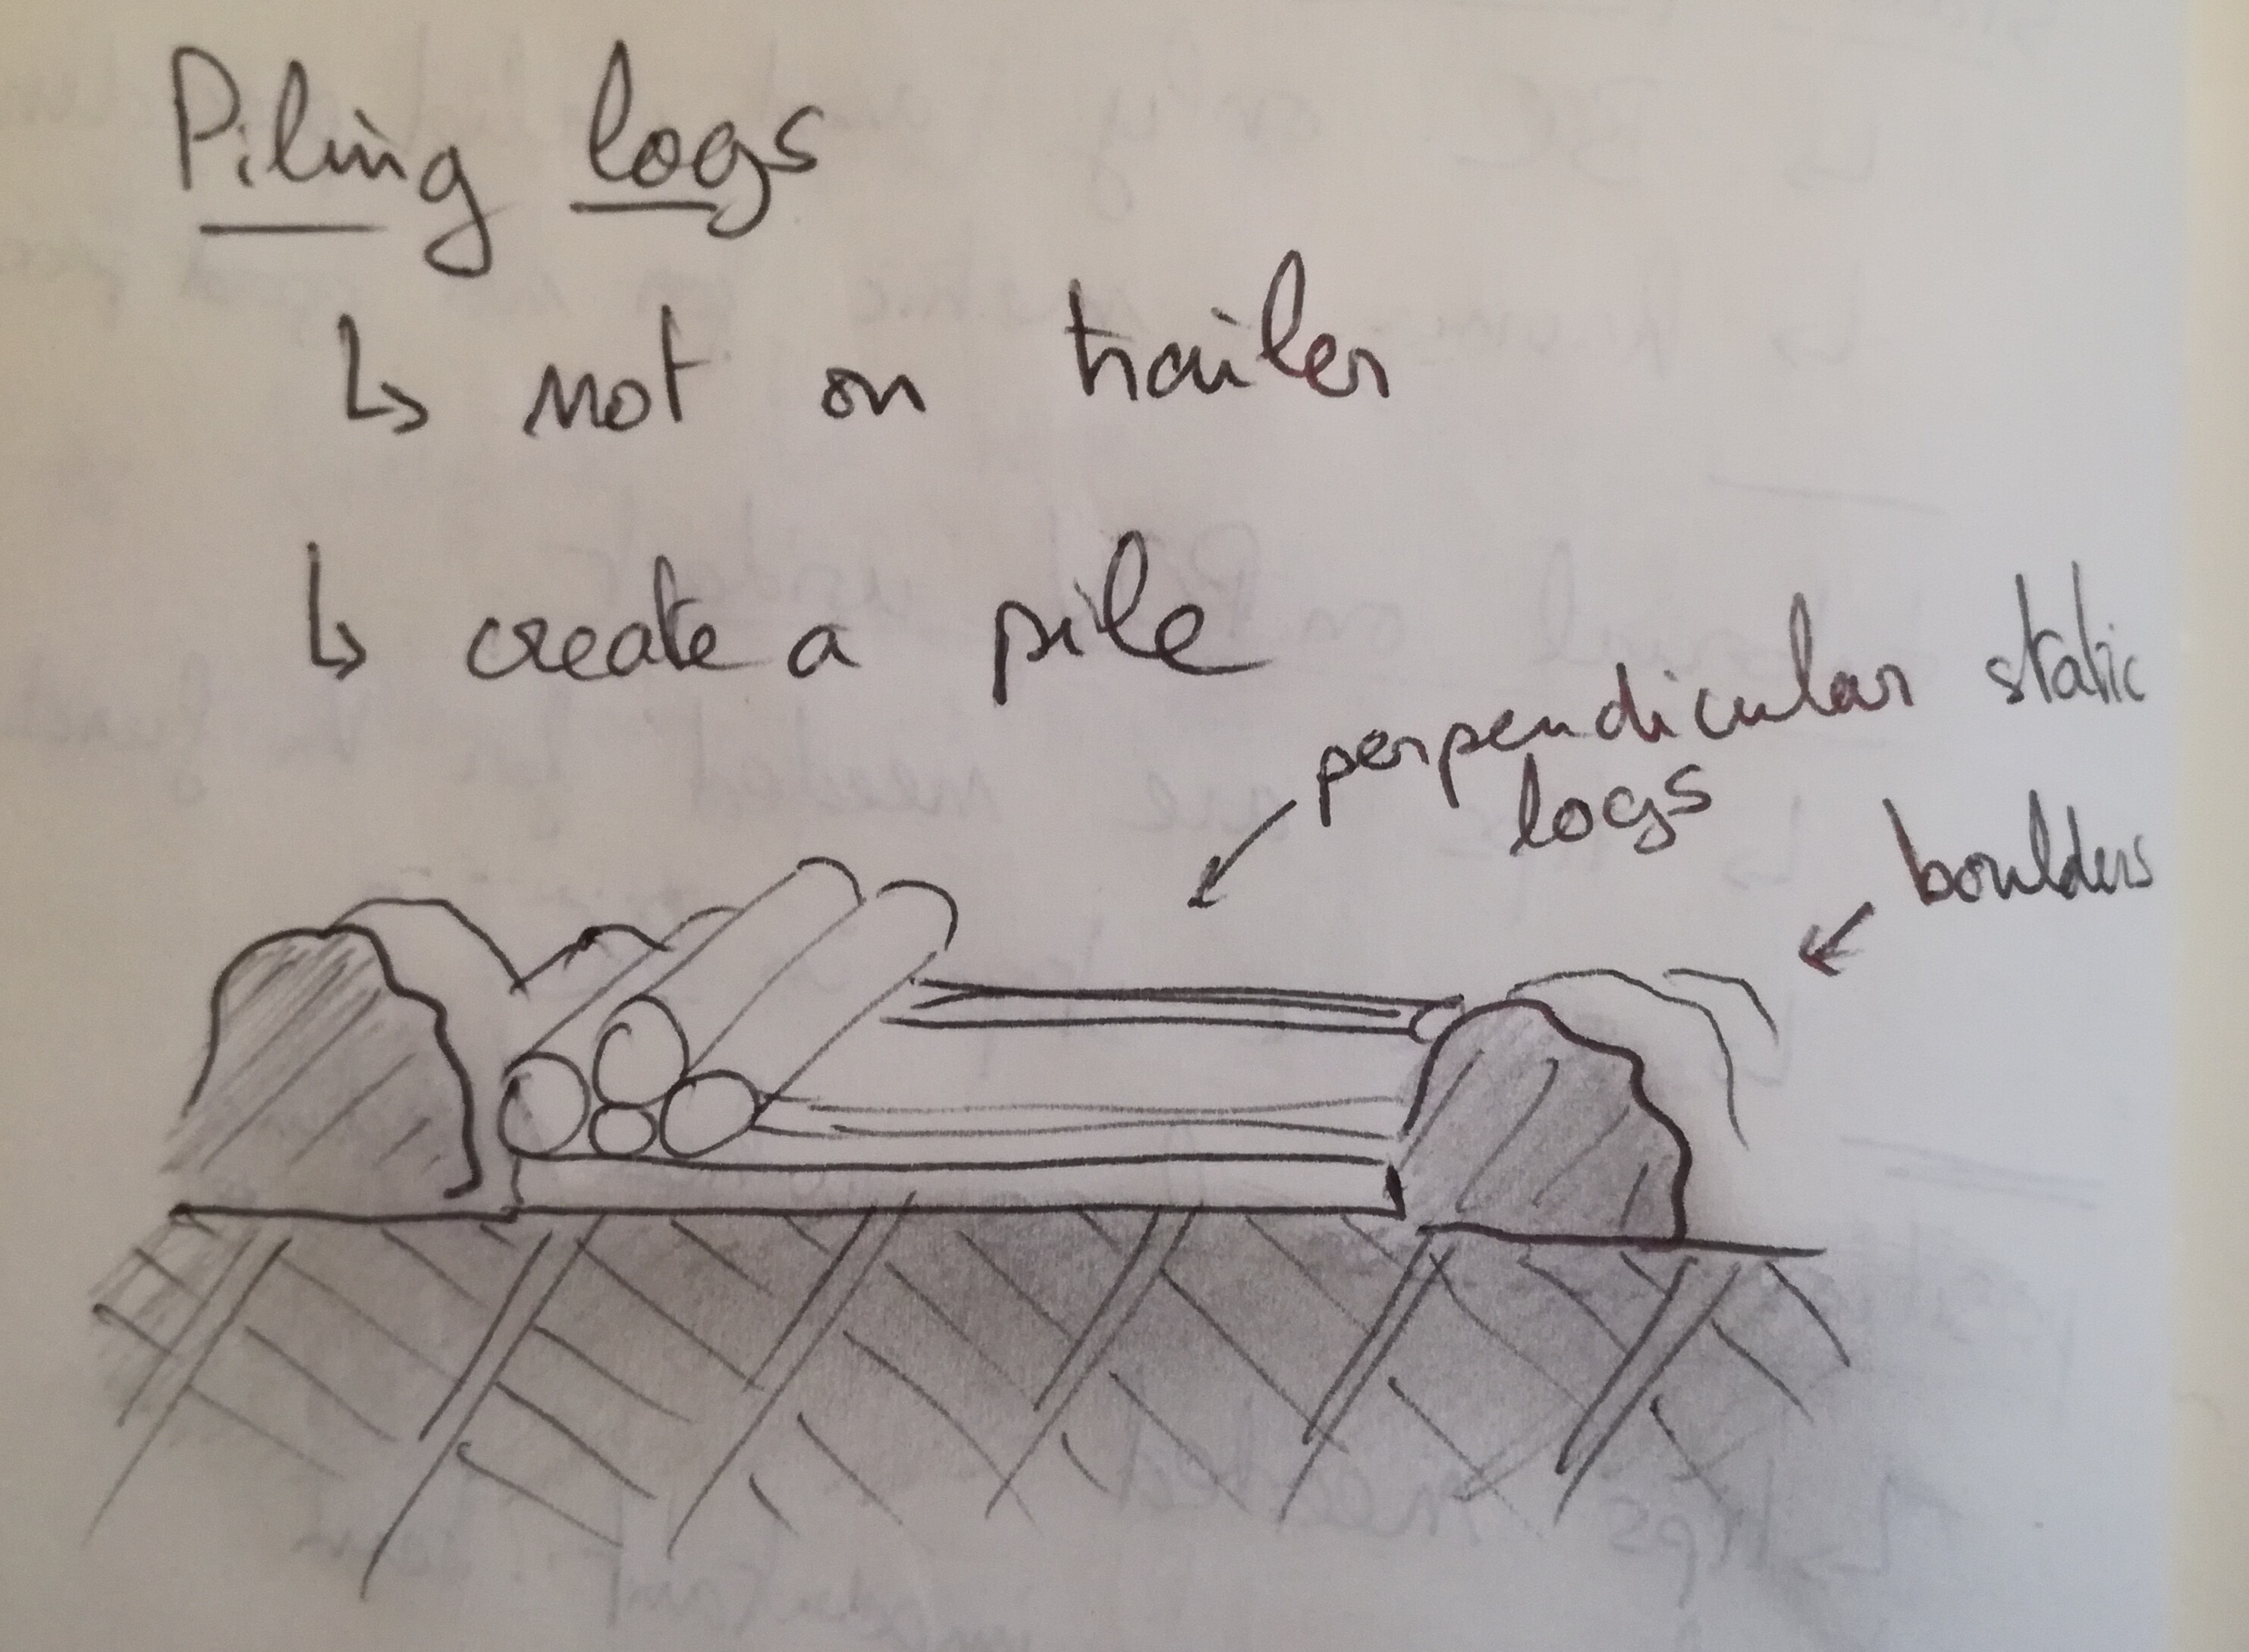 Piling logs
↳ not on trailer
↳ create a pile
perpendicular static
logs
boulders